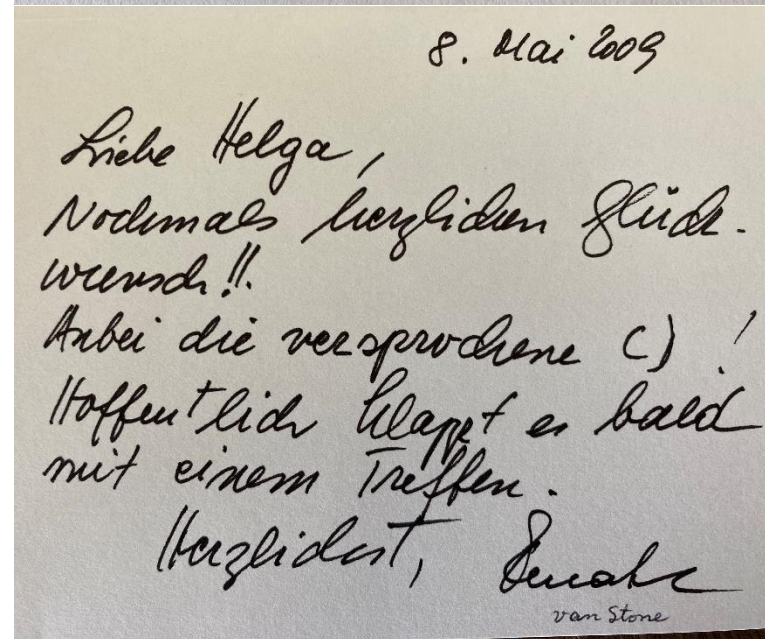 8. Mai 2009
Liebe Helga,
Nochmals herzlichen Glück-
wunsch!!
Anbei die versprochene CD!
Hoffentlich klappt es bald
mit einem Treffen.
Herzlichst, Renate
van Stone